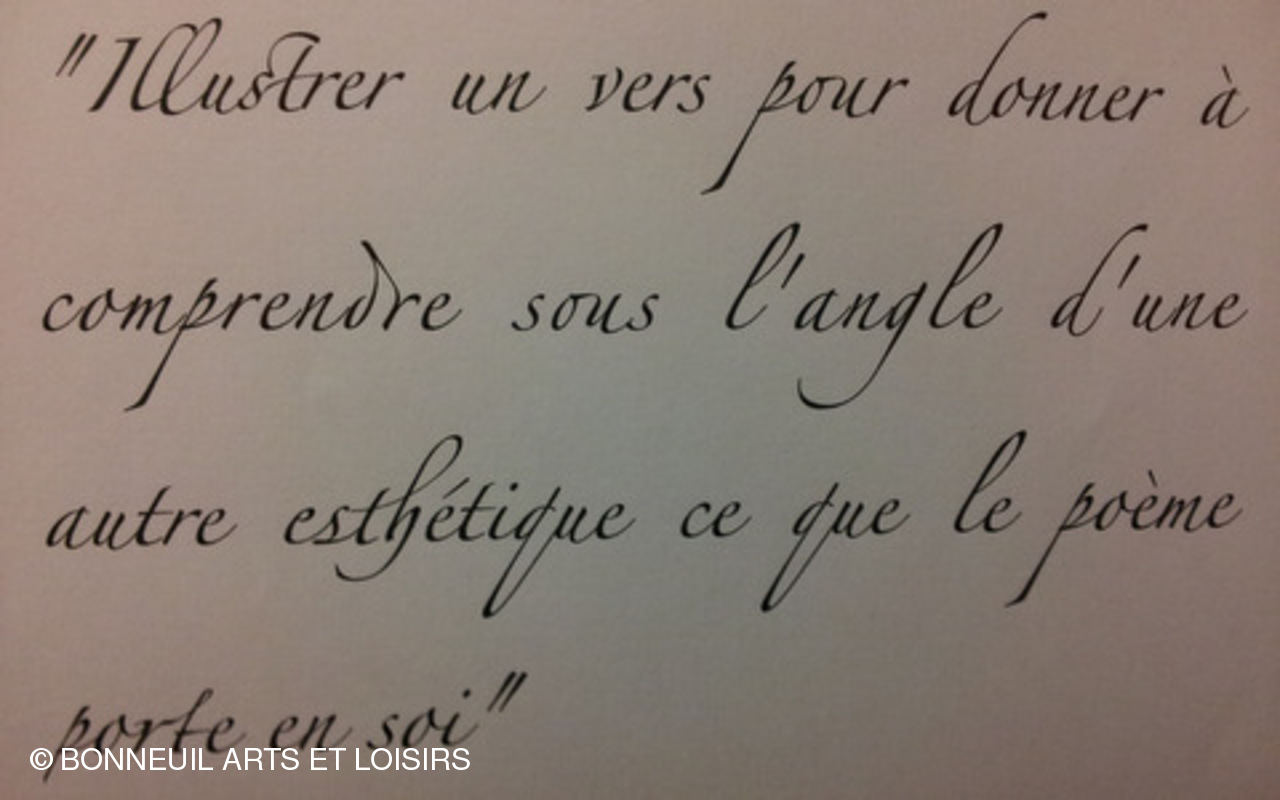 "Illustrer un vers pour donner à
comprendre sous l'angle d'une
autre esthétique ce que le poème
porte en soi"
© BONNEUIL ARTS ET LOISIRS